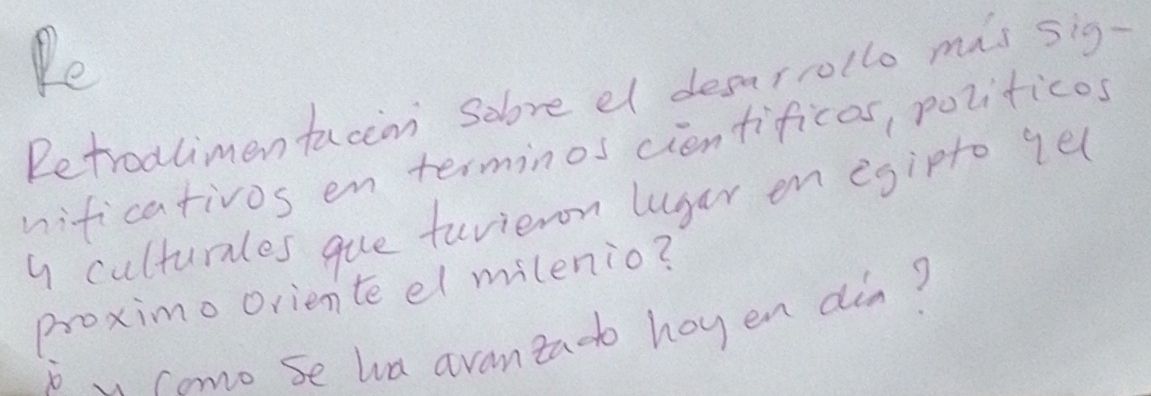 Re
Retroalimentación sobre el desarrollo más sig-
nificativos en terminos cientificos, politicos
y culturales que tuvieron lugar en egipto y el
proximo oriente el milenio?
¿ y como se ha avanzado hoy en día?